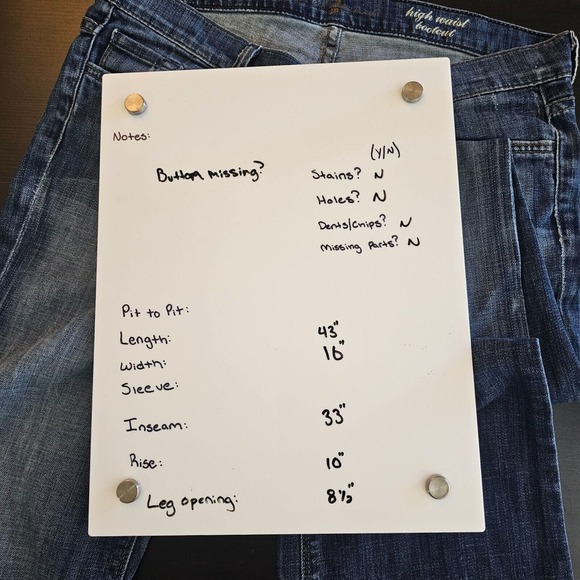 high waist
bootcut
Notes:
(Y/N)
Button missing?
Stains? N
Holes? N
Dents/Chips? N
Missing Parts? N
Pit to Pit:
Length: 43"
Width: 16"
Sleeve:
Inseam: 33"
Rise: 10"
Leg opening: 8½"